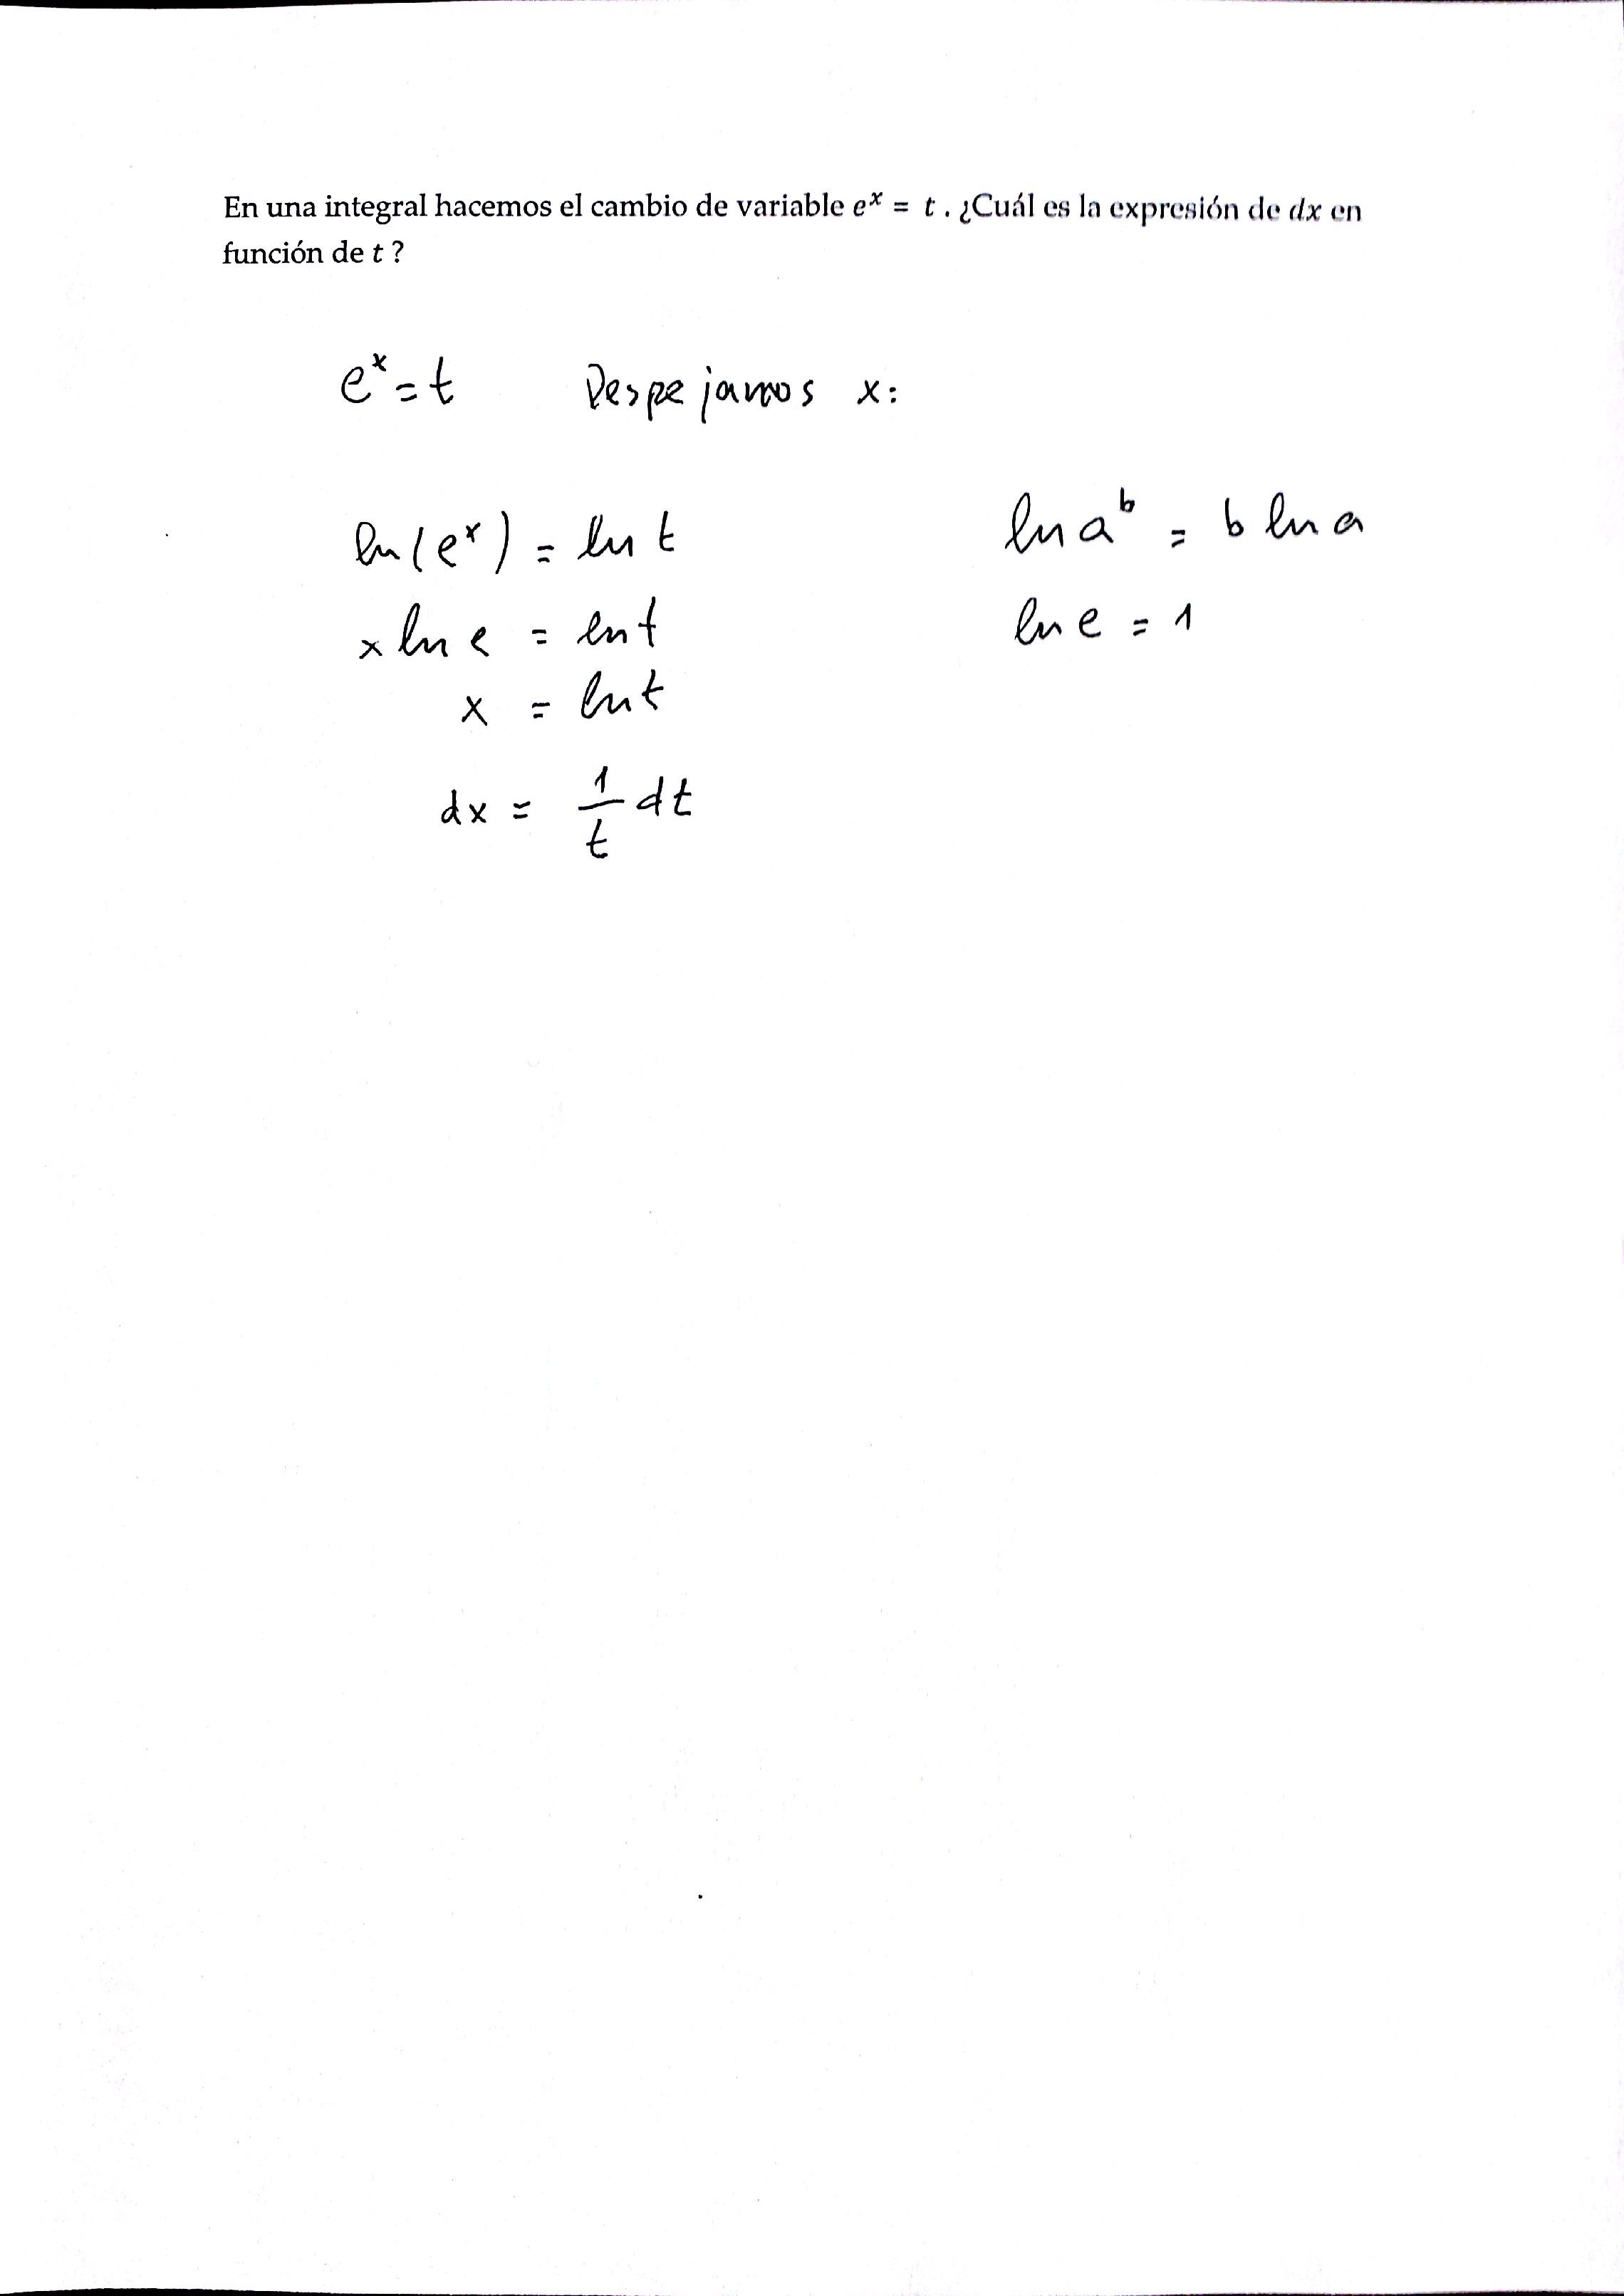 En una integral hacemos el cambio de variable eˣ = t . ¿Cuál es la expresión de dx en
función de t ?
eˣ = t Despejamos x:
ln(eˣ) = ln t ln aᵇ = b ln a
x ln e = ln t ln e = 1
x = ln t
dx = 1/t dt